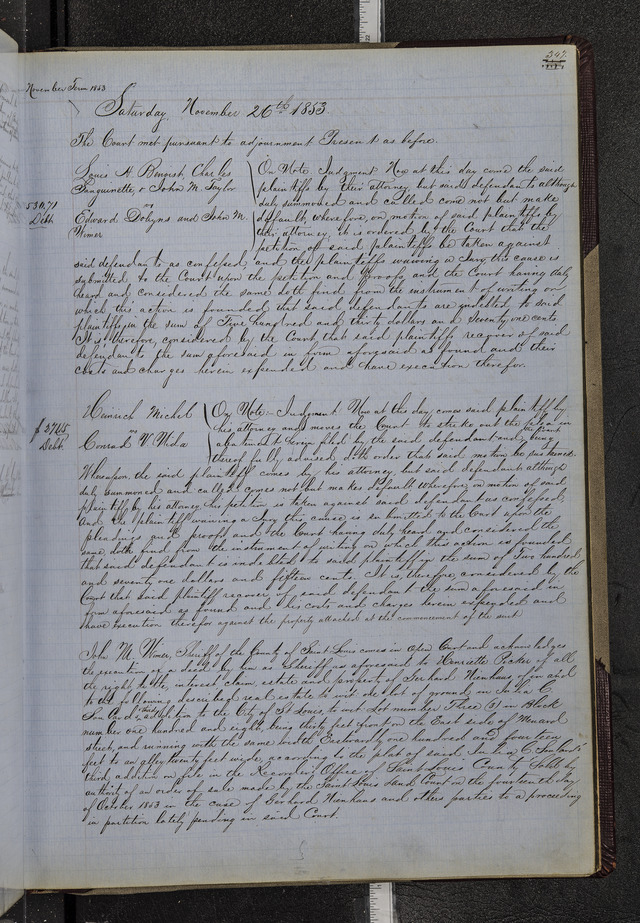 347
November Term 1853
Saturday, November 26th 1853.
The Court met pursuant to adjournment Present as before.
Louis A. Benoist, Charles
Sanguinette, & John M. Taylor
vs
Edward Dobyns and John M.
Wimer
530,71
Debt
On Note. Judgment. Now at this day come the said
plaintiffs by their attorney, but said defendants although
duly summoned and called come not but make
default, wherefore, on motion of said plaintiffs by
their attorney, it is ordered by the Court that the
petition of said plaintiffs be taken against
said defendants as confessed, and the plaintiffs waiving a Jury this cause is
submitted to the Court upon the petition and proofs, and the Court having duly
heard and considered the same doth find from the instrument of writing on
which this action is founded that said defendants are indebted to said
plaintiffs in the sum of Five hundred and thirty dollars and Seventy one cents
It is therefore, considered by the Court that said plaintiffs recover of said
defendants the sum aforesaid in form aforesaid as found and their
costs and charges herein expended and have execution therefor.
Heinrich Michel
vs
Conrad W
Debt.
On Note. Judgment. Now at this day comes said plaintiff by
his attorney and moves the Court to strike out the plea in
abatement herein filed by the said defendant and the Court being
thereof fully advised, doth order that said motion be sustained.
Whereupon the said plaintiff comes by his attorney but said defendant although
duly summoned and called comes not but makes default wherefore, on motion of said
plaintiff by his attorney his petition is taken against said defendant as confessed,
and the plaintiff waiving a Jury this cause is submitted to the Court upon the
pleadings and proofs and the Court having duly heard and considered the
same doth find from the instrument of writing on which this action is founded
that said defendant is indebted to said plaintiff in the sum of Two hundred
and seventy one dollars and fifteen cents. It is, therefore, considered by the
Court that said plaintiff recover of said defendant the sum aforesaid in
form aforesaid as found and his costs and charges herein expended and
have execution therefor against the property attached at the commencement of the suit.
John M. Wimer, Sheriff of the County of Saint Louis comes in open Court and acknowledges
the execution of a deed by him as Sheriff as aforesaid to Henriette of all
the right, title, interest claim, estate and property of Gerhard Nienhaus of in and
to the following described real estate to wit: a lot of ground in Julia C.
Soulard's third addition to the City of St Louis, to wit Lot number Three (3) in Block
number one hundred and eight, being thirty feet front on the East side of Menard
street, and running with the same width Eastwardly one hundred and fourteen
feet to an alley twenty feet wide, according to the plat of said Julia C. Soulard's
third addition on file in the Recorder's Office of Saint Louis County Sold by
authority of an order of sale made by the Saint Louis Land Court on the fourteenth day
of October 1853 in the case of Gerhard Nienhaus and others parties to a proceeding
in partition lately pending in said Court.